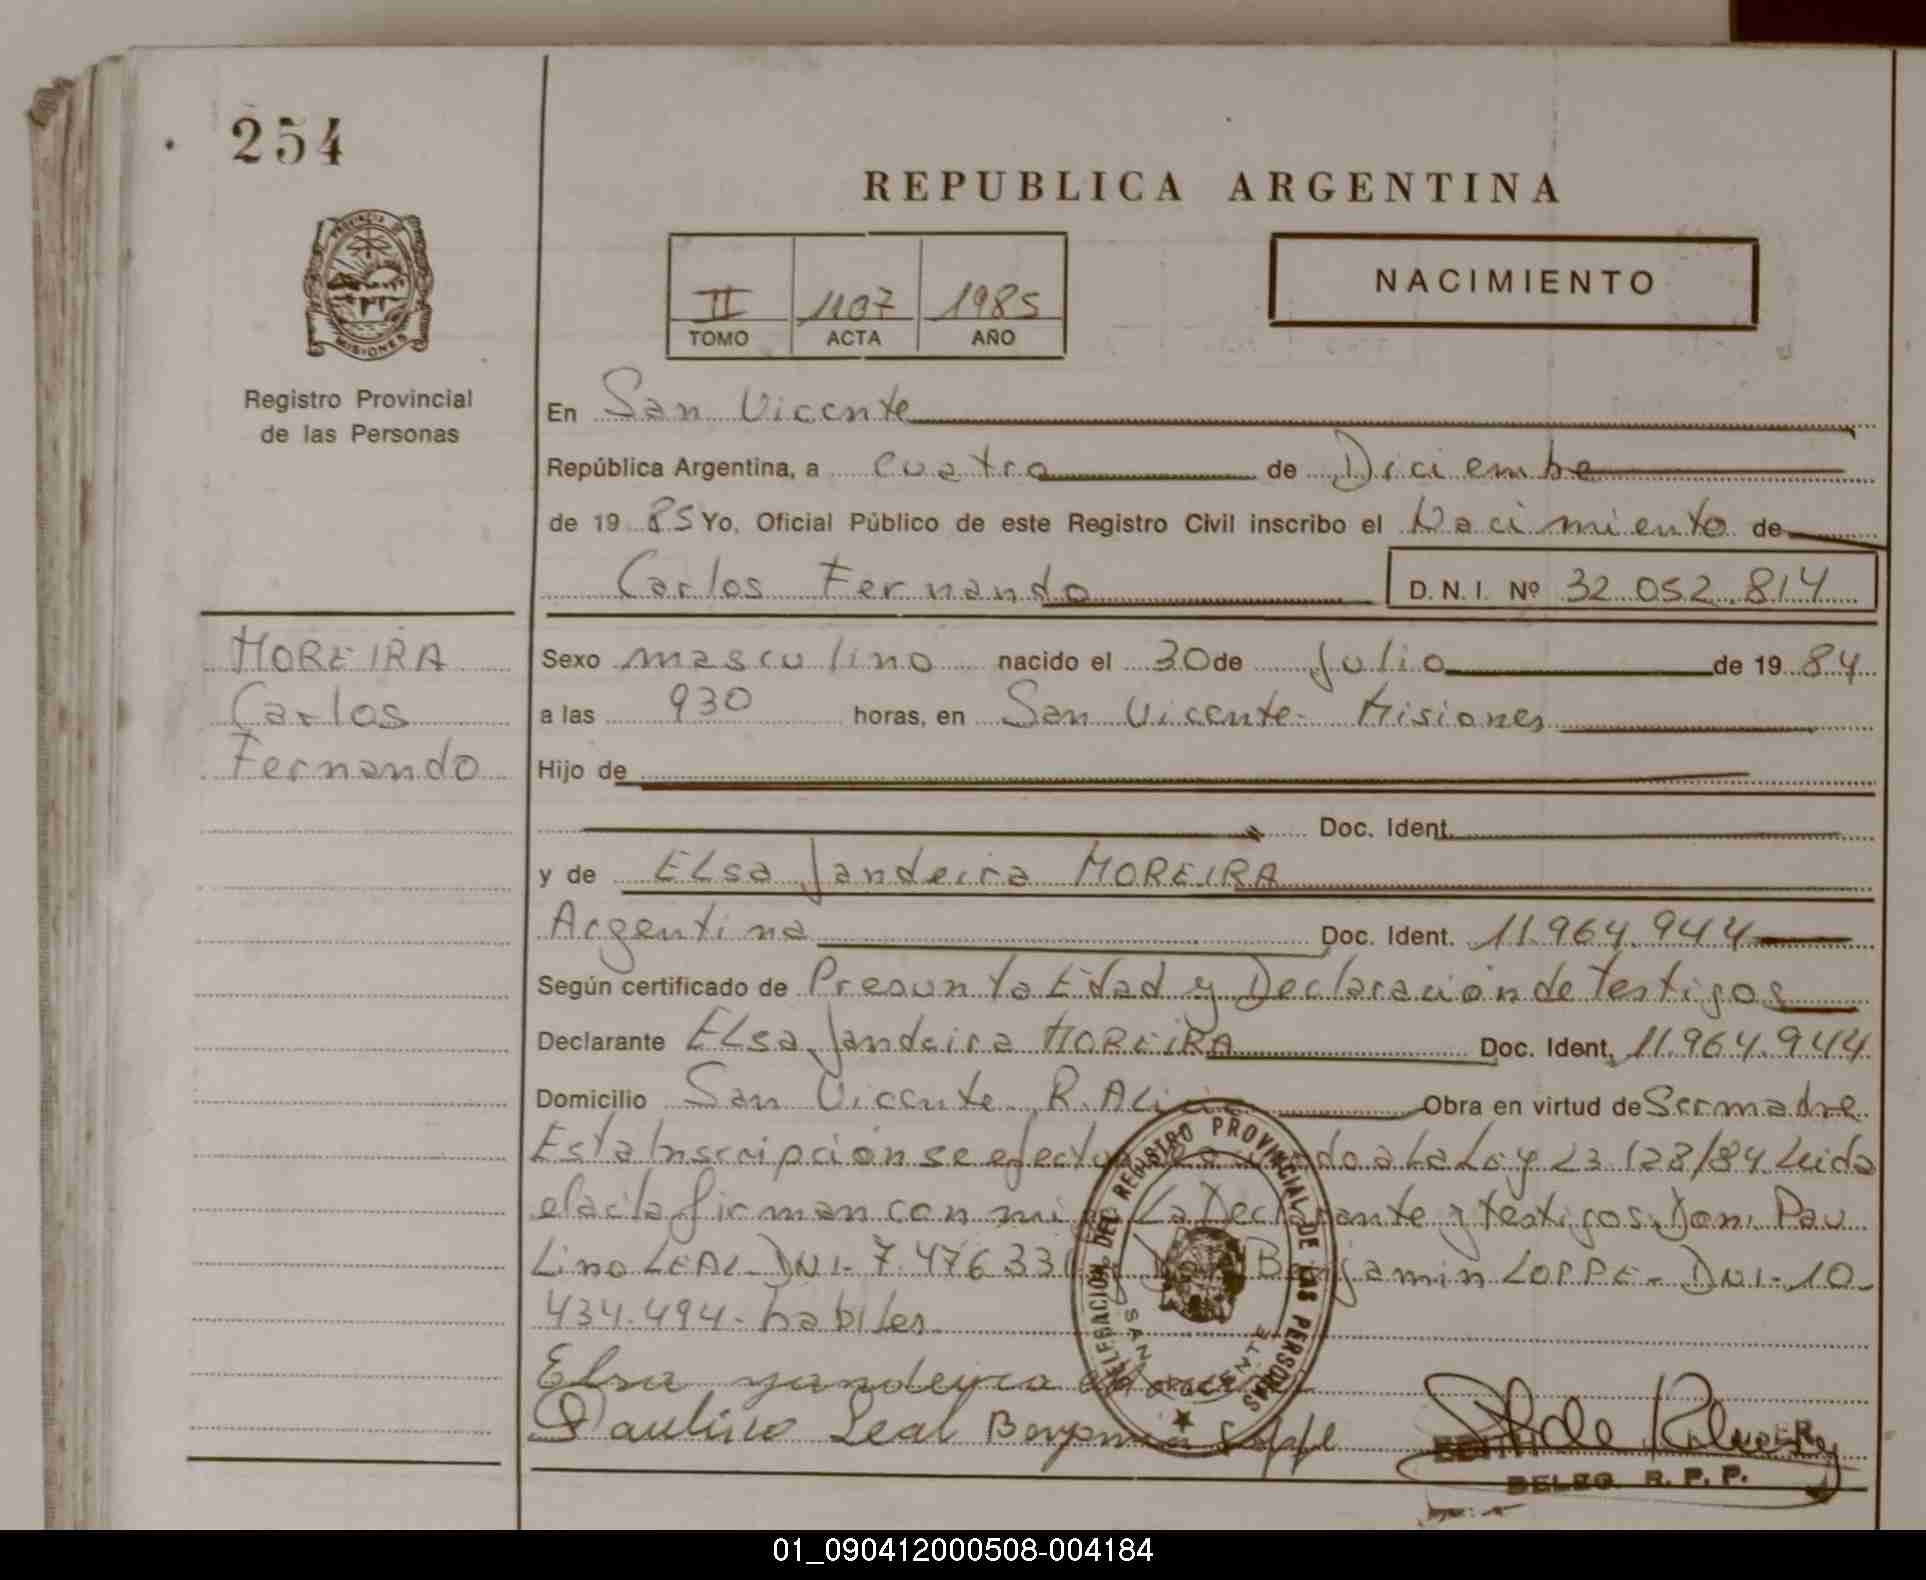 254
REPUBLICA ARGENTINA
PROVINCIA DE
MISIONES
Registro Provincial
de las Personas
II 1107 1985
TOMO ACTA AÑO
NACIMIENTO
En San Vicente
República Argentina, a cuatro de Diciembe
de 1985 Yo, Oficial Público de este Registro Civil inscribo el Nacimiento de
Carlos Fernando D.N.I. Nº 32.052.814
MOREIRA
Carlos
Fernando
Sexo masculino nacido el 30 de Julio de 1984
a las 930 horas, en San Vicente- Misiones
Hijo de
Doc. Ident.
y de Elsa Jandeira MOREIRA
Argentina Doc. Ident. 11.964.944
Según certificado de Presunta Edad y Declaración de Testigos
Declarante Elsa Jandeira MOREIRA Doc. Ident. 11.964.944
Domicilio San Vicente R. Alicia Obra en virtud de Ser madre
Esta Inscripción se efectua de acuerdo a la Ley 23.128/84 Leida
el acta firman con migo La Declarante y testigos Don Pau
Lino LEAL- DNI- 7.476.331 y Don Benjamin LOPPE- DNI-10-
434.494- habiles
Elsa yandeira
Paulino Leal Benjamin Loppe
DELEGACION DEL REGISTRO PROVINCIAL DE LAS PERSONAS
SAN VICENTE
DELEG. R. P. P.
01_090412000508-004184